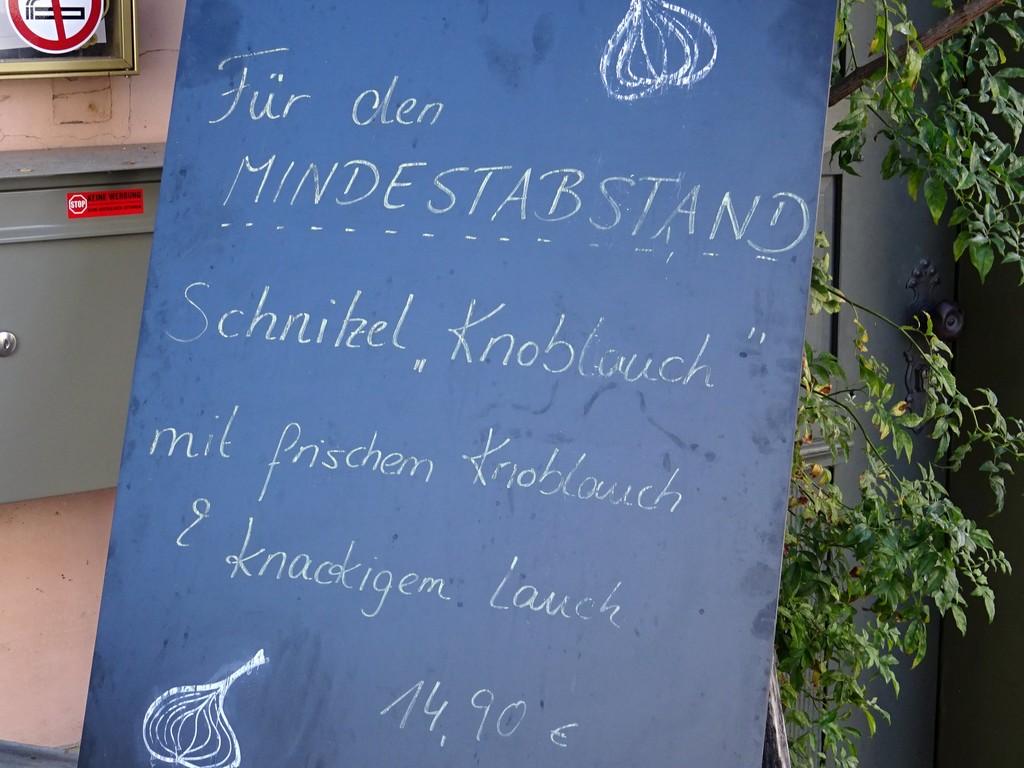 Für den
MINDESTABSTAND
Schnitzel „Knoblauch"
mit frischem Knoblauch
& knackigem Lauch
14,90 €
STOP KEINE WERBUNG